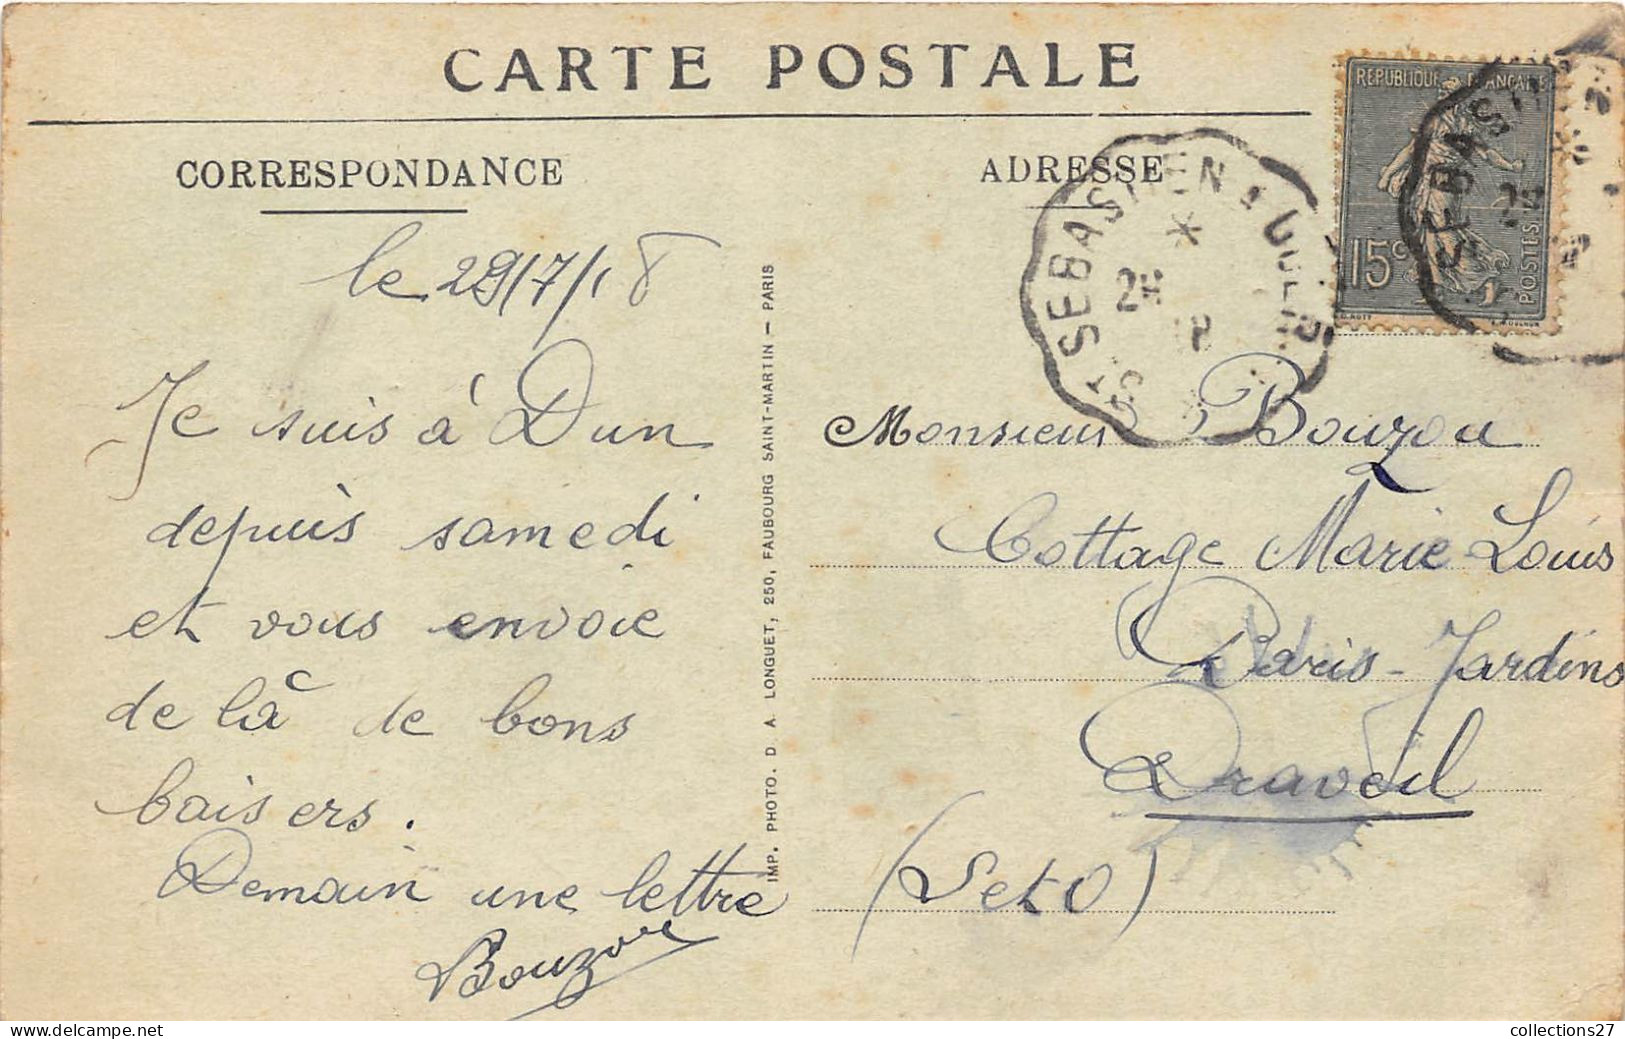 CARTE POSTALE
CORRESPONDANCE
ADRESSE
REPUBLIQUE FRANÇAISE
15c
POSTES
ST SEBASTIEN A GUER
SEBAST
le 29/7/18
Je suis à Dun
depuis samedi
et vous envoie
de là de bons
baisers.
Demain une lettre
Bouzou
IMP. PHOTO. D. A. LONGUET, 250, FAUBOURG SAINT-MARTIN — PARIS
Monsieur Bouzou
Cottage Marie Louis
Paris-Jardins
Draveil
(S et O)
collections27